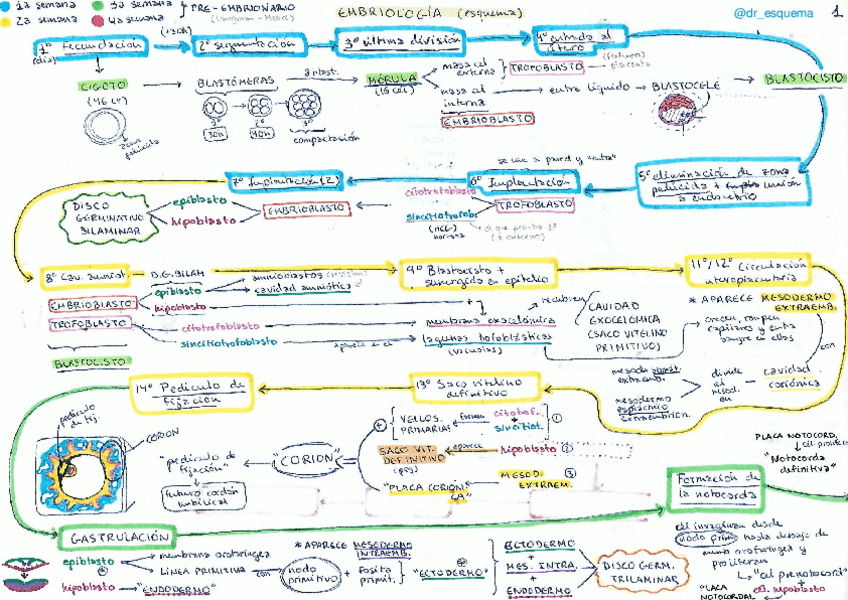 1a semana
3a semana
2a semana
4a semana
PRE-EMBRIONARIO
(Langman - Moore)
EMBRIOLOGÍA (esquema)
@dr_esquema
1
1º Fecundación
(día)
2º segmentación
3º última división
4º entrada al útero
CIGOTO
(46 cr)
zona pelúcida
BLASTÓMERAS
30h
40h
3º
compactación
MÓRULA
(16 cel)
masa cel externa
TROFOBLASTO
(futura) placenta
masa cel interna
EMBRIOBLASTO
entra líquido
BLASTOCELE
BLASTOCISTO
5º eliminación de zona
pelúcida + unión
a endometrio
6º Implantación
7º Implantación (2)
se une a pared y entra
TROFOBLASTO
citotrofoblasto
sincitiotrofob.
EMBRIOBLASTO
epiblasto
hipoblasto
DISCO
GERMINATIVO
BILAMINAR
8º Cav. amniót.
D.G. BILAM
EMBRIOBLASTO
TROFOBLASTO
BLASTOCISTO
epiblasto
amnioblastos
cavidad amniótica
hipoblasto
citotrofoblasto
sincitiotrofoblasto
aparece en el
9º Blastocisto +
sumergido en epitelio
membrana exocelómica
lagunas trofoblásticas
(vacuolas)
recubren
CAVIDAD
EXOCELÓMICA
(SACO VITELINO
PRIMITIVO)
11º/12º Circulación
uteroplacentaria
* APARECE MESODERMO
EXTRAEMB.
crecen, rompen
capilares y entra
sangre en ellos
con
cavidad
coriónica
divide
al
mesod.
en
mesodermo
esplácnico
13º Saco vitelino
definitivo
14º Pedículo de
fijación
pedículo de fij.
CORION
"pedículo de
fijación"
futuro cordón
umbilical
"CORION"
VELLOS.
PRIMARIAS
forman
citotrof.
+
sincitiot.
1
SACO VIT.
DEFINITIVO
aparece
hipoblasto
2
"PLACA CORIÓNICA"
MESOD.
EXTRAEM.
3
PLACA NOTOCORD.
"Notocorda
definitiva"
Formación de
la notocorda
GASTRULACIÓN
epiblasto
hipoblasto
membrana orofaríngea
LÍNEA PRIMITIVA
con
"ENDODERMO"
* APARECE MESODERMO
INTRAEMB.
nodo
primitivo
+
fosita
primit.
"ECTODERMO"
ECTODERMO
+
MES. INTRA.
+
ENDODERMO
DISCO GERM.
TRILAMINAR
cél invaginan desde
nodo prim. hasta debajo de
memb orofaríngea y
proliferan
"cél prenotocord"
+
cél. hipoblasto
"PLACA
NOTOCORDAL"